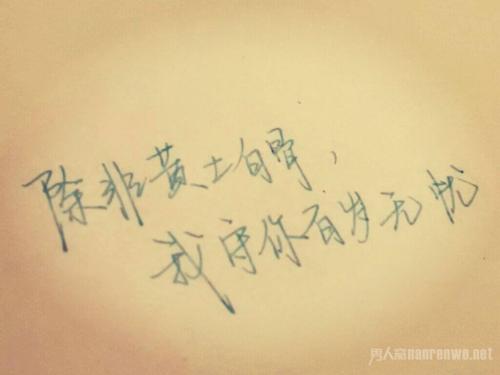 除非黄土白骨，
我守你百岁无忧
男人窝nanrenwo.net